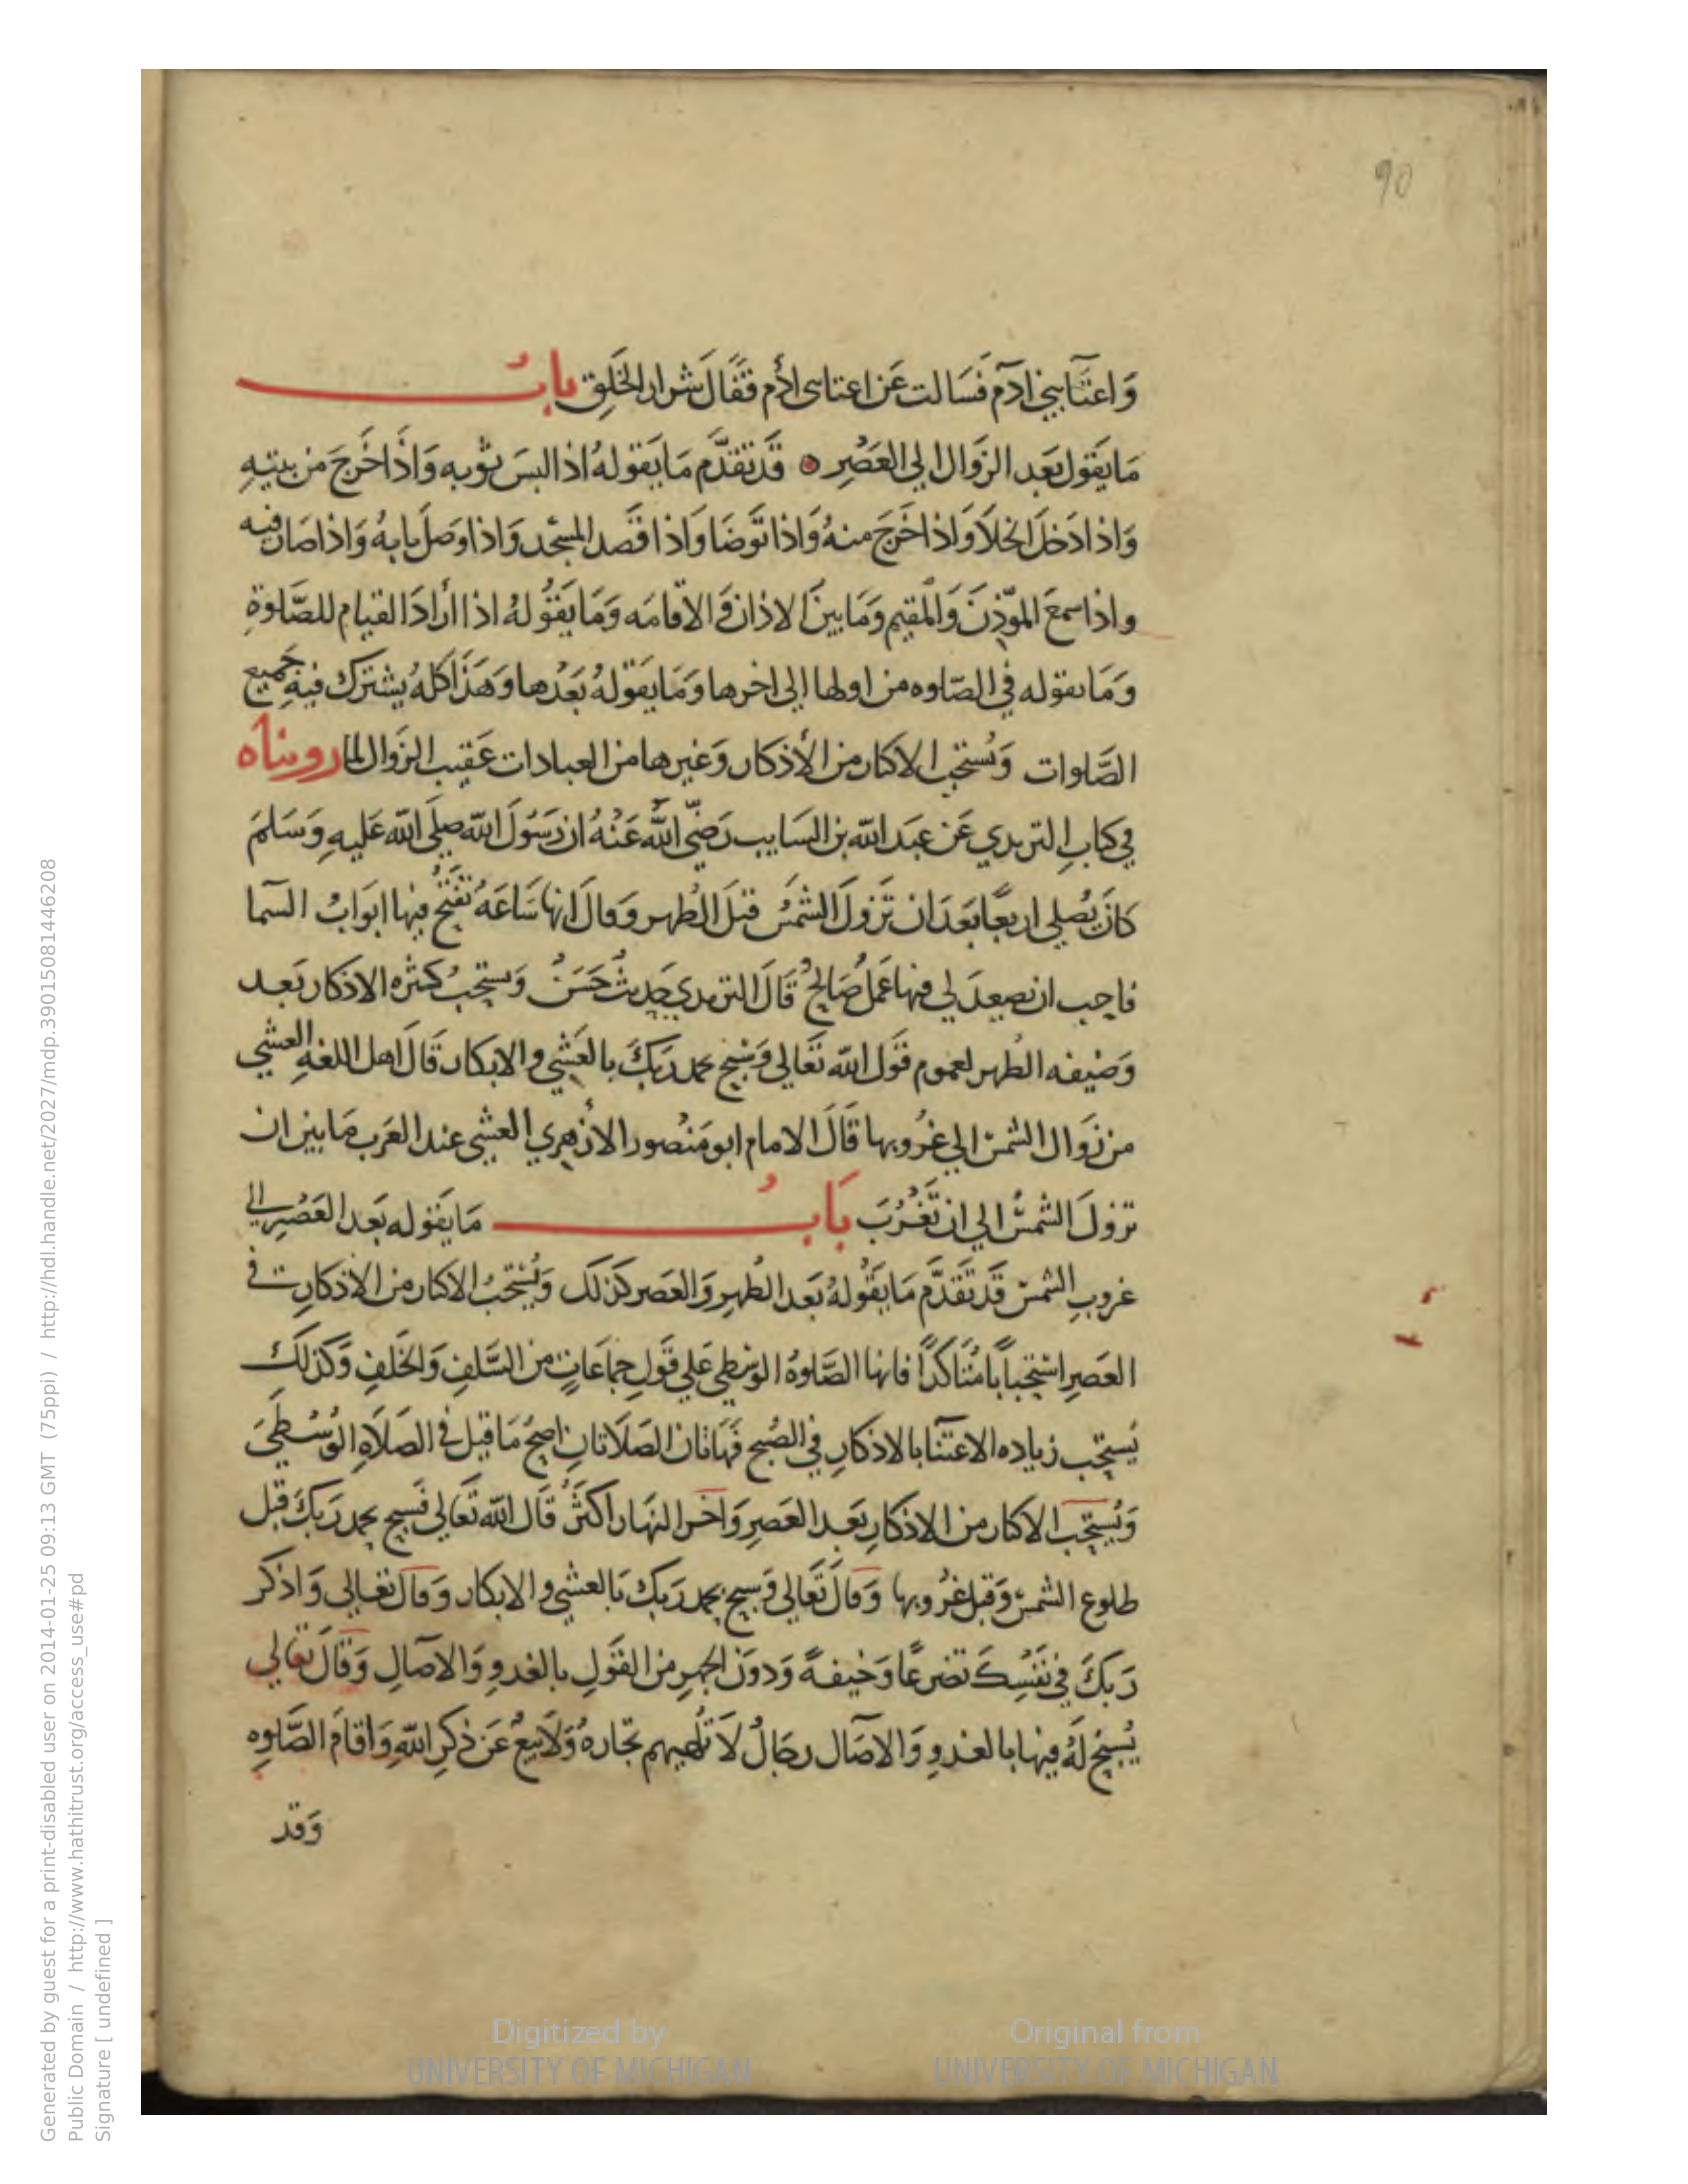 90
وَاعتَا بني ادآم فَسَالت عَن اعتاى ادأم فقَالَ شَرار الخَلِق بابُ
مَا يَقول بَعد الزَوال الي العَصْرِ ۞ قَد تقدَّم مَا يَقولهُ اذا لبسَ ثوبه وَاذَا خَرجَ من بيتهِ
وَاذا دَخلَ الخلَا وَاذا خَرجَ منهُ وَاذا توَضَا وَاذا قصَد المسْجد وَاذا وصَل بابهُ وَاذا صَار فيه
واذا سمعَ الموّذِنَ وَالمقيم وَمَا بينَ الاذان وَ الاقامَه وَمَا يَقُولهُ اذا أرادَ القيام للصَّلوةِ
وَمَا يقوله في الصّلوه من اولها إلي اخرها وَمَا يقولهُ بَعْدها وَهَذَا كلهُ يشترك فيهِ جميع
الصَّلوات وَيُستحَب الاكثار من الأذكار وَغيرها من العبادات عَقيب الزَوال لما رويناه
في كتابِ الترمدي عَن عبَد الله بن السَايب رَضيَ اللهُ عَنْهُ ان رَسُولَ الله صلي الله عَليهِ وَسَلمَ
كانَ يُصلي اربعًا بَعدَ ان تَزولَ الشمسُ قبلَ الظهر وَقالَ انها سَاعَهُ تفتحُ فيها ابوَابُ السَما
فاحب ان يصعدَ لي فيها عَملُ صَالحُ قَالَ الترمدي حَديثُ حَسَنُ وَيستحِبُ كثره الاذكار بَعد
وَضيفه الظهر لعموم قوَل الله تعَالي وَسَبح بحمد رَبكَ بالعَشي والابكار قَالَ اهل اللغهِ العشي
من زَوال الشمسْ الي غرُوبها قَالَ الامام ابو مَنصور الازهري العشي عند العَرب مَا بين ان
تزولَ الشمسُ الي ان تَغرُبَ بَابُ مَا يَقوله بَعد العَصْرِ الي
غروبِ الشمسْ قَد تَقدَّم مَا يَقُولهُ بَعد الظهرِ وَالعَصر كذلك وَيُستحَبُ الاكثار من الاذكارِ في
العَصرِ استحباباً مُتَاكدًا فانها الصَّلوهُ الوسَطي عَلي قوَلِ جمَاعَاتٍ من السَّلفِ وَالخَلفِ وَكذلكَ
يَستحَب زياده الاعتنَا بالاذكارِ في الصُبح فهَاتان الصَلَاتانِ اصحُ مَا قيل في الصَلَاهِ الوُسْطَيَ
وَيُستحَب الاكثار من الاذكارِ بَعد العَصرِ وَاخَر النهَار اكثَرُ قَال الله تعَالي فسَبح بحمد رَبكَ قبل
طلوع الشمسْ وَقبل غرُوبها وَقالَ تَعَالي وَسبح بحمد رَبك بَالعشي والابكار وَقالَ تعَالي وَاذكر
رَبكَ في نفسِكَ تضرعًا وَخيفةً وَدونَ الجهرِ من القَولِ بالغدوِ وَالاصَالِ وَقَالَ تعَالي
يُسبحُ لَهُ فيها بالغدوِ وَالاصَال رجَالُ لَا تلُهيهم تجَارهُ وَلَا بيعُ عَن ذكرِ اللهِ وَاقامَ الصَّلوهِ
وَقد
Generated by guest for a print-disabled user on 2014-01-25 09:13 GMT (75ppi) / http://hdl.handle.net/2027/mdp.39015081446208
Public Domain / http://www.hathitrust.org/access_use#pd
Signature [ undefined ]
Digitized by
UNIVERSITY OF MICHIGAN
Original from
UNIVERSITY OF MICHIGAN